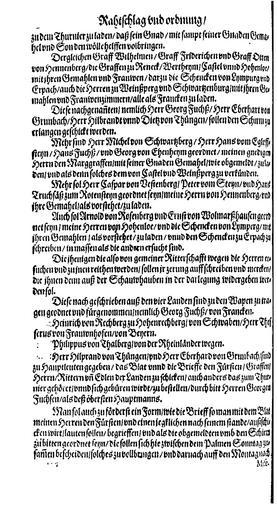 Rahtschlag vnd ordnung /
zu dem Thurnier zu laden / daß sein Gnad / mit sampt seiner Gnaden Gema-
hel vnd Son den wölle helffen volbringen.
Dergleichen Graff Wilhelmen / Graff Friderichen vnd Graff Otten
von Hennenberg / die Graffen zu Reneck / Wertheym / Castel vnnd Hohenloe /
mit jhren Gemahlen vnd Frauwen / darzu die Schencken von Lympurg vnd
Erpach / auch die Herren zu Weinsperg vnd Schwartzenburg / mit jhren Ge-
mahlen vnd Frauwenzimmern / alle als Francken zu laden.
Diese nachgenannten / nemlich Herr Georg Fuchß / Herr Eberhart von
Grumbach / Herr Hilbrandt vnnd Dietz von Thüngen / sollen den Schmu zu
erlangen geschickt werden.
Mehr sind Herr Michel von Schwartzberg / Herr Hans vom Egloff-
steyn / Hans Fuchß / vnd Georg von Ehenheym geordnet / meinen gnedigen
Herren den Marggraffen / mit seiner Gnaden Gemahel / wie obgemeldet / zu la-
den / vnd als denn solches dem von Castel vnd Weinsperg zu verkünden.
Mehr sol Herr Caspar von Vestenberg / Peter vom Steyn / vnd Hans
Truchsäß zum Rotensteyn geordnet seyn / meine Herrn von Hennenberg / vnd
jhre Gemahel als vorstehet / zu laden.
Auch sol Arnold von Rosenberg vnd Ernst von Wolmarßhausen geord-
net seyn / meine Herren von Hohenloe / vnd die Schencken von Lymperg / mit
jhren Gemahlen / als vorstehet / zu laden / vnnd den Schencken zu Erpach zu
schreiben / in massen als die andern ersucht sind.
Die jhenigen die also von gemeiner Ritterschafft wegen die Herren er-
suchen vnd zu jnen reithen werden / sollen jr zerung auffschreiben vnd mercken /
die jhnen denn auff der Schauwthauben in der darlegung widergeben wer-
den sol.
Diese nach geschrieben auß den vier Landen sind zu den Wapen zu tra-
gen geordnet vnd fürgenommen / nemlich Georg Fuchß / von Francken.
Heinrich von Rechberg zu Hohenrechberg / von Schwaben / Herr Thes-
serus von Frauwnhofen / von Beyern.
Philippus von Thalberg / von der Rheinländer wegen.
Herr Hilprand von Thüngen / vnd Herr Eberhard von Grumbach / sind
zu Hauptleuten gegeben / das Blat vnnd die Brieffe den Fürsten / Graffen /
Herrn / Rittern vn̄ Edlen der Landen zu schicken / auch anders das zum Thur-
nier gehöret / vnnd sich gebüren würde / zu bestellen / durch bitt Herren Georgen
Fuchsen / als deß obersten Hauptmanns.
Man sol auch zu förderst ein Form / wie die Brieff so man mit dem Blat
meinen Herren den Fürsten / vnd einem jeglichen nach seinem stande / außschi-
cken wirt / lauten sollen / begrieffen / vnd als die obgemeldten vmb den Schirm
zu bitten geordnet seyn / die sollen sich hie zwischen dem Palmen Sonntag zu-
samen befehelen / solches zu volbringen / vnd darnach auff den Montag nach